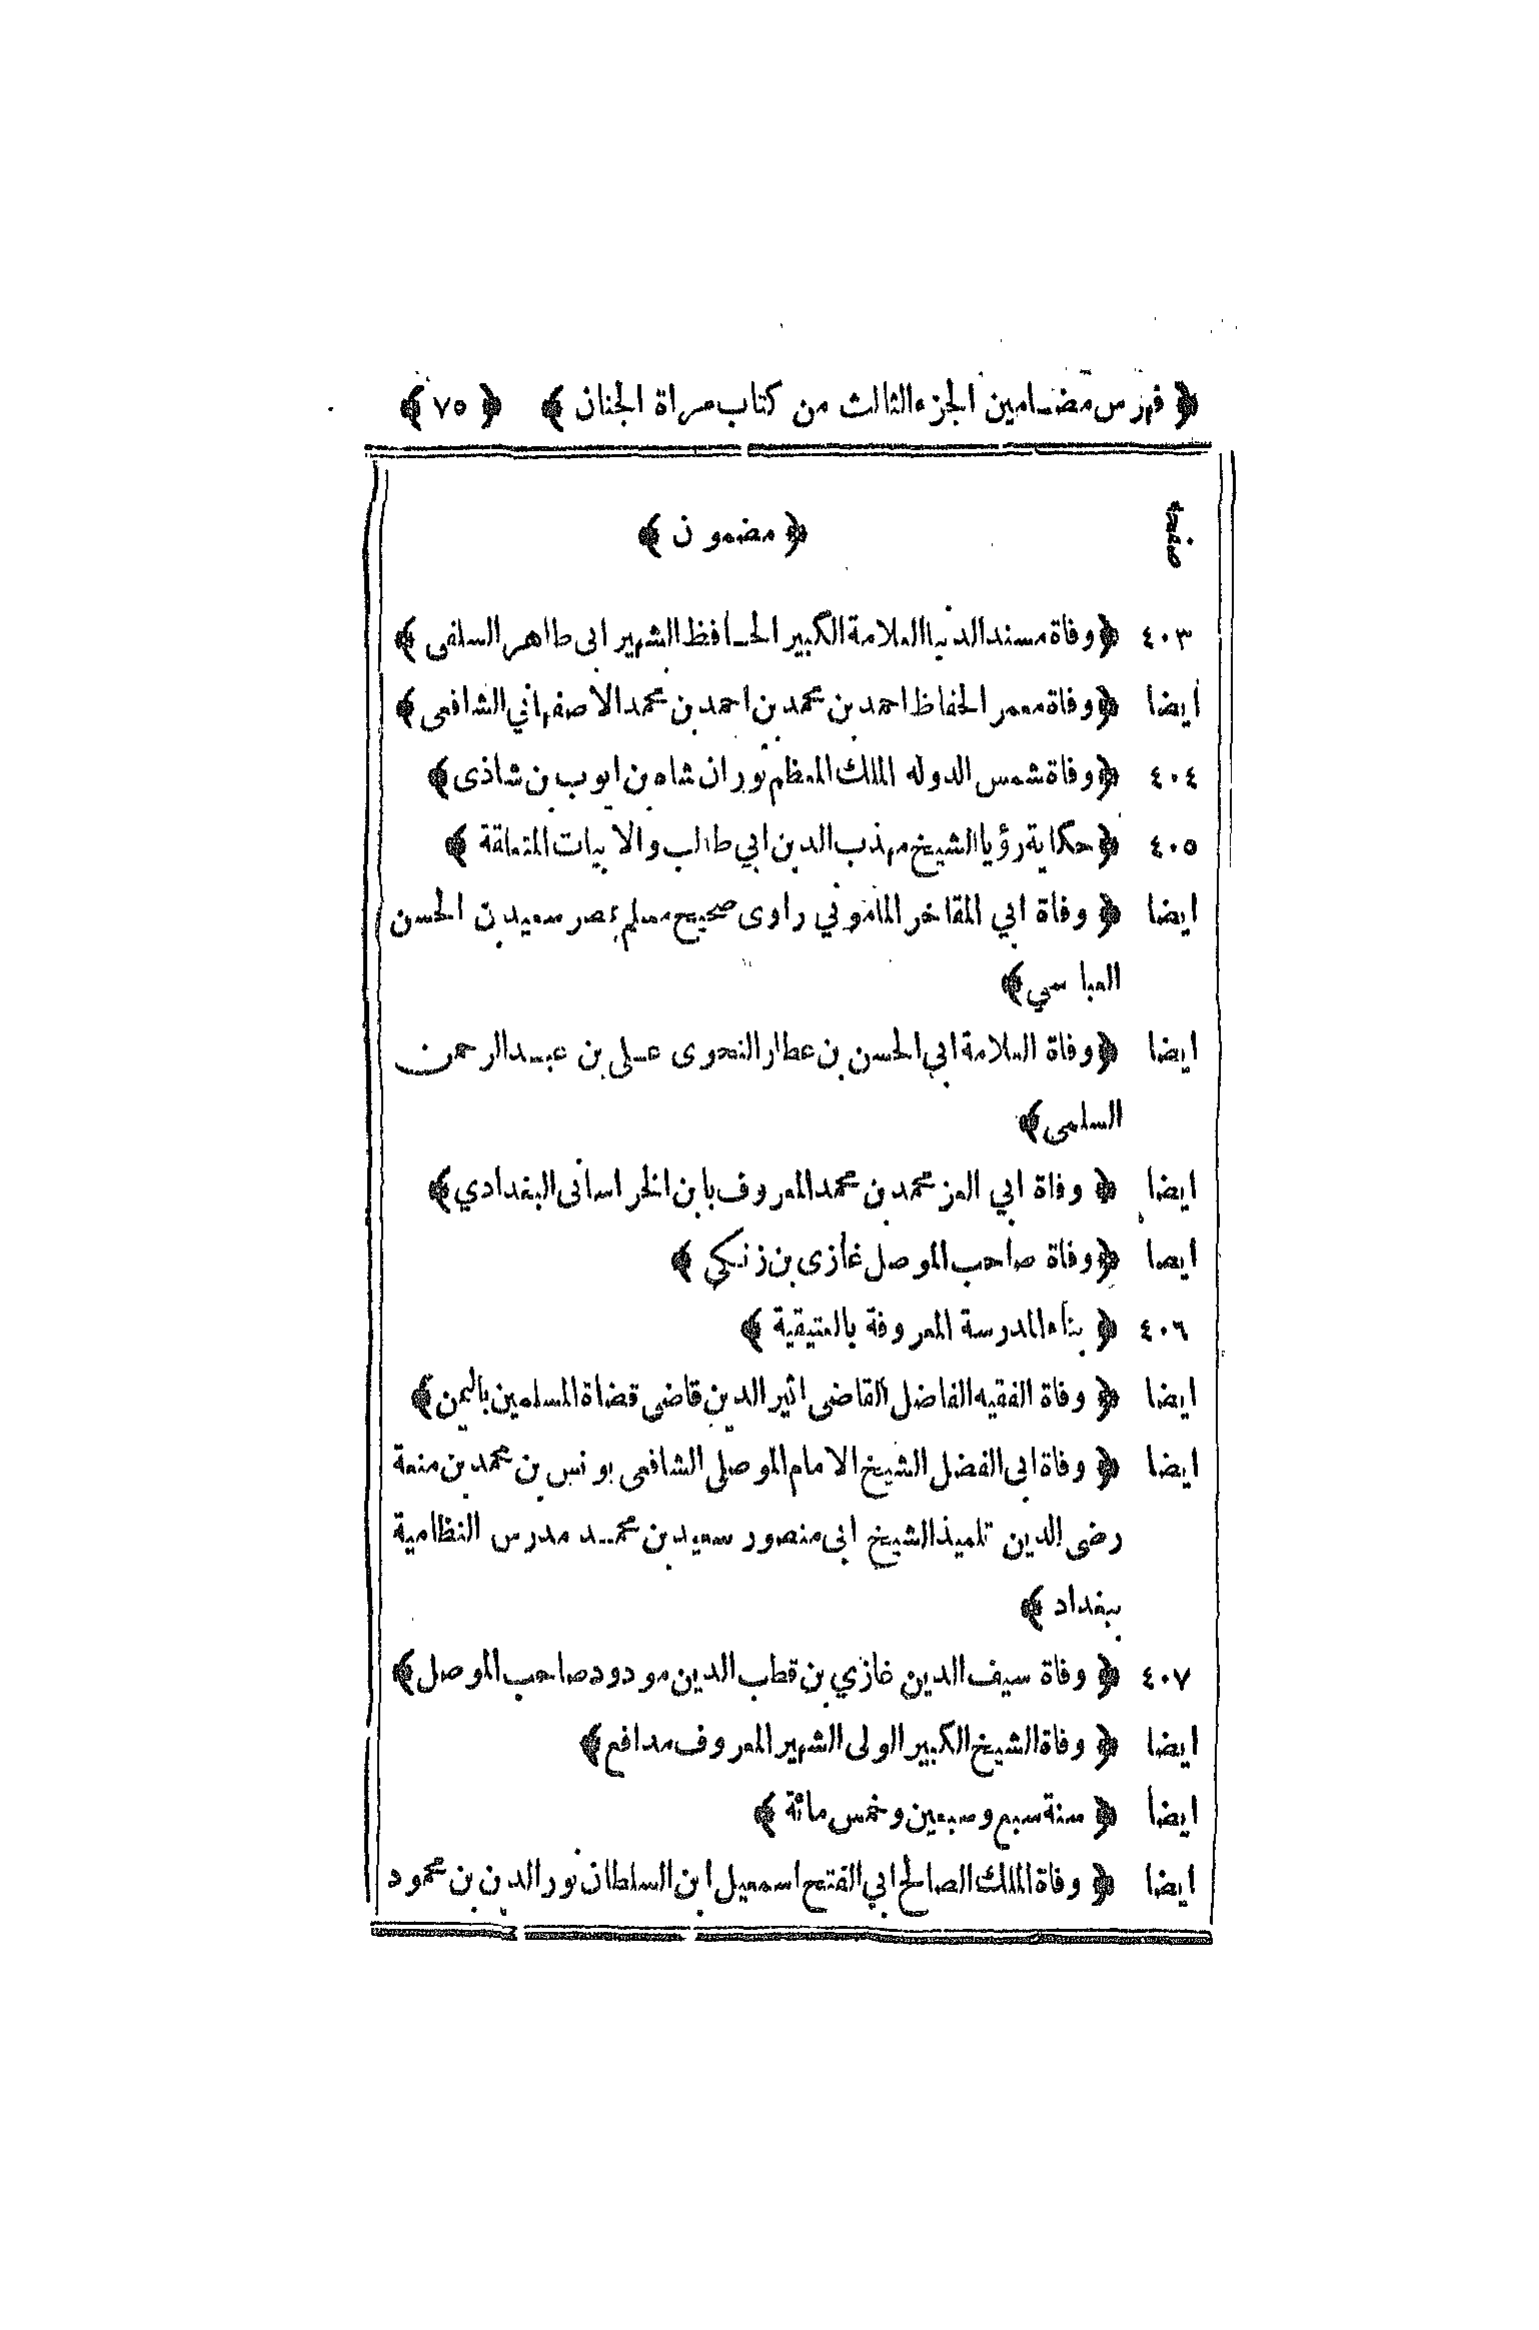 ﴿ فهرس مضامين الجزء الثالث من كتاب مراة الجنان ﴾ ﴿ ٧٥ ﴾
صفحة ﴿ مضمون ﴾
٤٠٣ ﴿ وفاة مسند الدنيا العلامة الكبير الحافظ الشهير ابى طاهر السلفى ﴾
أيضا ﴿ وفاة معمر الحفاظ احمد بن محمد بن احمد بن محمد الاصفهاني الشافعى ﴾
٤٠٤ ﴿ وفاة شمس الدوله الملك المعظم توران شاه بن ايوب بن شاذى ﴾
٤٠٥ ﴿ حكاية رؤيا الشيخ مهذب الدين ابي طالب والابيات المتعلقة ﴾
ايضا ﴿ وفاة ابي المفاخر المأموني راوى صحيح مسلم بمصر سعيد بن الحسن
العباسي ﴾
ايضا ﴿ وفاة العلامة ابي الحسن بن عطار النحوى على بن عبدالرحمن
السلمى ﴾
ايضا ﴿ وفاة ابي العز محمد بن محمد المعروف بابن الخراسانى البغدادي ﴾
ايضا ﴿ وفاة صاحب الموصل غازى بن زنكي ﴾
٤٠٦ ﴿ بناء المدرسة المعروفة بالعتيقية ﴾
ايضا ﴿ وفاة الفقيه الفاضل القاضى اثير الدين قاضى قضاة المسلمين باليمن ﴾
ايضا ﴿ وفاة ابى الفضل الشيخ الامام الموصلى الشافعى يونس بن محمد بن منعة
رضى الدين تلميذ الشيخ ابى منصور سعيد بن محمد مدرس النظامية
ببغداد ﴾
٤٠٧ ﴿ وفاة سيف الدين غازي بن قطب الدين مودود صاحب الموصل ﴾
ايضا ﴿ وفاة الشيخ الكبير الولى الشهير المعروف مدافع ﴾
ايضا ﴿ سنة سبع وسبعين وخمس مائة ﴾
ايضا ﴿ وفاة الملك الصالح ابي الفتح اسمعيل ابن السلطان نور الدين بن محمود